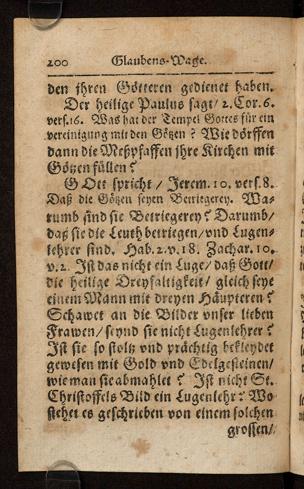 200 Glaubens-Wage.
den jhren Götteren gedienet haben.
Der heilige Paulus sagt / 2. Cor. 6.
vers. 16. Was hat der Tempel Gottes für ein
vereinigung mit den Götzen? Wie dörffen
dann die Meßpfaffen jhre Kirchen mit
Götzen füllen?
GOtt spricht / Jerem. 10. vers. 8.
Daß die Götzen seyen Betriegerey. Wa-
rumb sind sie Betriegerey? Darumb /
daß sie die Leuth betriegen / vnd Lugen-
lehrer sind. Hab. 2. v. 18. Zachar. 10.
v. 2. Ist das nicht ein Luge / daß Gott /
die heilige Dreyfaltigkeit / gleich seye
einem Mann mit dreyen Häupteren?
Schawet an die Bilder vnser lieben
Frawen / seynd sie nicht Lugenlehrer?
Ist sie so stoltz vnd prächtig bekleydet
gewesen mit Gold vnd Edelgesteinen /
wie man sie abmahlet? Ist nicht St.
Christoffels Bild ein Lugenlehr? Wo
stehet es geschrieben von einem solchen
grossen /